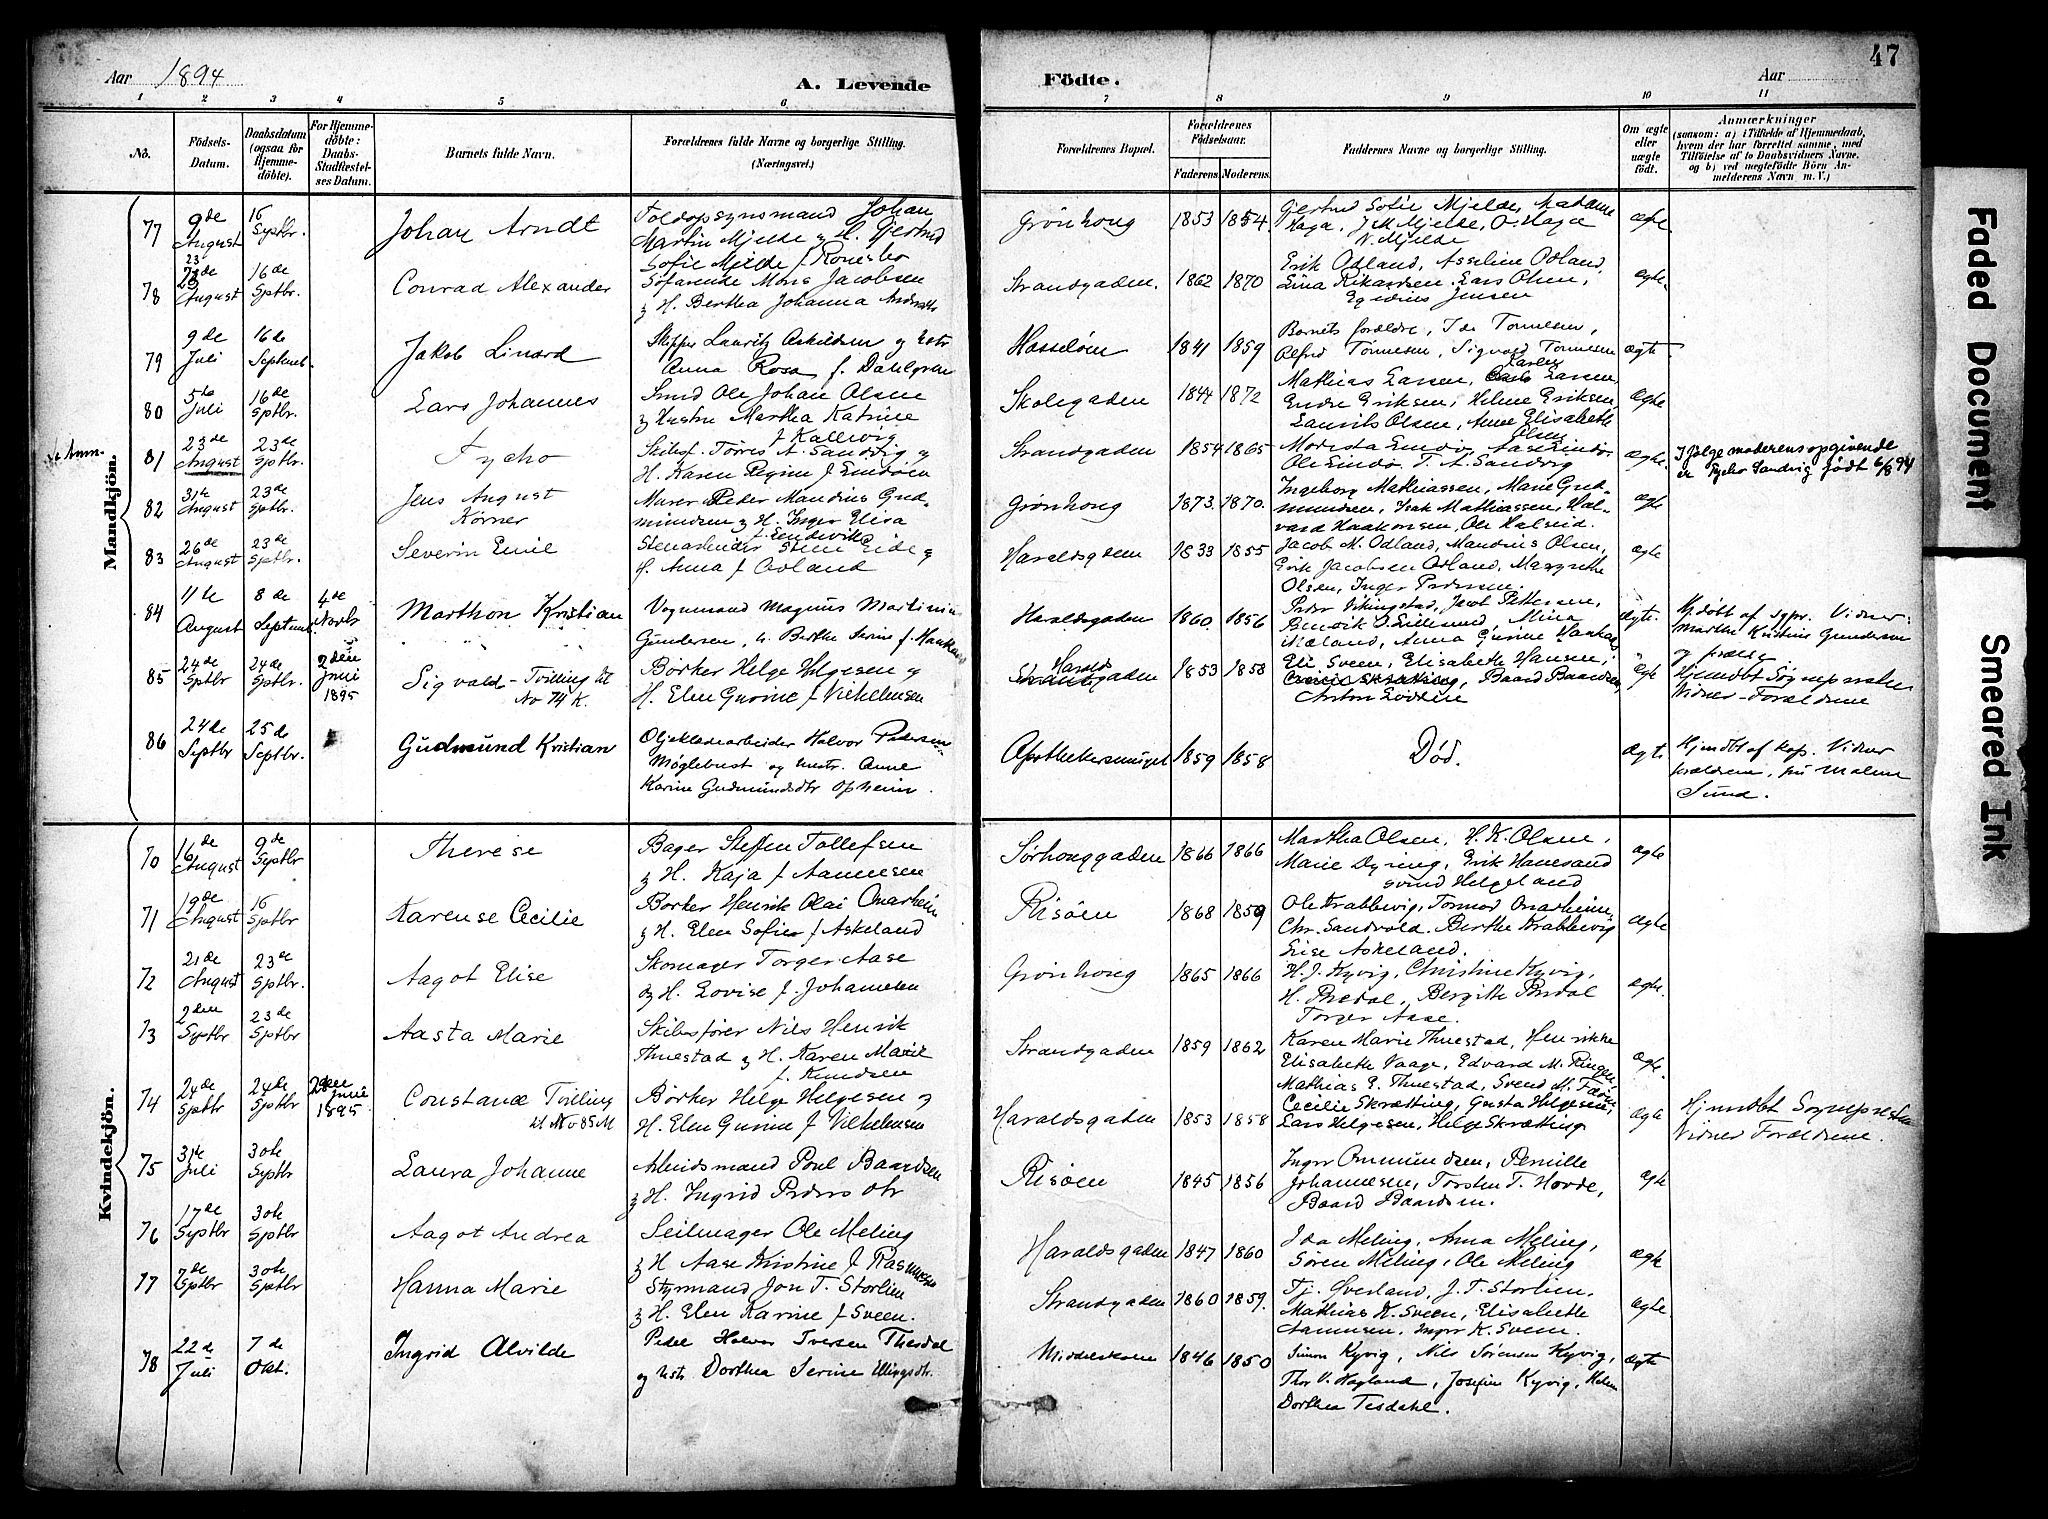 47
Aar 1894
A. Levende
Födte.
Aar
1 2 3 4 5 6 7 8 9 10 11
No.
Födsels-
Datum.
Daabsdatum
(ogsaa for
Hjemme-
döbte).
For Hjemme-
döbte:
Daabs-
Stadfæstel-
ses Datum.
Barnets fulde Navn.
Forældrenes fulde Navne og borgerlige Stilling.
(Næringsvei.)
Forældrenes Bopæl.
Forældrenes
Födselsaar.
Faderens. Moderens.
Faddernes Navne og borgerlige Stilling.
Om ægte
eller
uægte
födt.
Anmærkninger
(saasom: a) i Tilfælde af Hjemmedaab,
hvem der har forrettet samme, med
Tilföielse af to Daabsvidners Navne,
og b) ved uægtefödte Börn An-
melderens Navn m. V.)
Mandkjön.
77
9de
August
16
Septbr.
Johan Arndt
Toldopsynsmand Johan
Martin Mjelde & H. Gjertrud
Sofie Mjelde f.
Grönhoug
1853 1854
Gjertrud Sofie Mjelde, Madame
Haga, J M Mjelde, O. Haga
N. Mjelde
ægte
78
23
August
16de
Sptbr.
Conrad Alexander
Söfarende Mons Jacobsen
& H. Bertha Johanna
Strandgaden.
1862 1870
Erik Odland, Asseline Odland,
Lina Rikardsen, Lars Olsen,
Egidius Jensen
ægte.
79
9de
Juli
16de
Septemb.
Jakob Linard
Skipper Lauritz Askildsen og Hstr
Anna Rosa f. Dahlgren
Hasseløen
1841 1859
Barnets forældre, Ida Tønnesen,
Alfred Tønnesen, Sigvald Tønnesen
ægte
80
5te
Juli
16de
Sptbr.
Lars Johannes
Smed Ole Johan Olsen
& Hustru Martha Katrine
f Kallevig
Skolegaden
1844 1872
Mathias Larsen, Larsen,
Endre Eriksen, Helene Eriksen
Laurits Olsen, Anne Elisabeth
Olsen
ægte
81
23de
August
23de
Sptbr.
Tycho
Skibsf. Törres A. Sandvig og
H. Karen Regine f
Strandgaden
1854 1865
Ole T. A. Sandvig
ægte.
I følge moderens opgivende
er Tycho Sandvig født 6/8 94
82
31te
August
23de
Sptbr.
Jens August
Körner
Murer Peder Mandius Gud-
mundsen & H. Inger Elisa
Grönhoug
1873. 1870.
Ingeborg Mathiassen, Marie Gud-
mundsen, Isak Mathiassen, Hal-
vard Haakonsen, Ole Halseid.
ægte
83
26de
August
23de
Sptbr.
Severin Emil
Stenarbeider Steen Eide &
H. Anna f Odland
Haraldsgaden
1833 1855
Jacob M. Odland, Mandius Olsen,
Erik Jacobsen Odland, Margrethe
Olsen, Inger Pedersen.
ægte
84
11te
August
8de
Septemb.
4de
Novbr
Marthon Kristian
Vognmand Magnus Martinius
Gundersen, & Berthe Serine f.
Haraldsgaden
1860. 1856
Peder Vikingstad, Jacob Pettersen,
Mina
Mæland, Anna Gurine
ægte.
Hjdöbt af sgpr. Vidner:
Marthe Kristine Gundersen
85
24de
Sptbr
24de
Sptbr.
2den
Juni
1895
Sigvald - Tvilling til
No 74 K.
Börker Helge Helgesen og
H. Elen Gurine f Vilhelmsen
Haralds
gaden
1853 1858
Eli Sveen, Elisabeth Hansen,
Baard Baardsen,
Anton
ægte
Hjemdbt Sognepresten
Vidner - Forældrene
86
24de
Septbr
25de
Septbr.
Gudmund Kristian
Oljeklædearbeider Halvor Pedersen
Møglebust og hustr. Anne
Karine Gudmundsdtr Opheim.
Apothekersmuget
1859 1858
Død.
ægte
Hjemdbt af kap. Vidner
forældrene, fru Malene
Sund.
Kvindekjön.
70
16de
August
9de
Septbr
Therese
Bager Steffen Tollefsen
& H. Kaja f Aannesen
Sørhouggaden
1866 1866
Martha Olsen, H. K. Olsen,
Marie Dyring, Erik Hanesand
Svend Helgeland
ægte
71
19de
August
16
Sptbr
Karense Cecilie
Börker Henrik Olai Onarheim
& H. Elen Sofie f Askeland
Risöen
1868 1859
Ole Krabbevig, Tormod Onarheim,
Chr. Sandvold, Berthe Krabbevig
Lise Askeland.
ægte
72
21de
August
23de
Sptbr.
Aagot Elise
Skomager Torger Aase
og H. Lovise f. Johannesen
Grönhoug
1865 1866
H. J. Kyvig, Christine Kyvig,
H. Bredal, Bergitte Bredal
Torger Aase.
ægte.
73
2den
Septbr
23de
Sptbr
Aasta Marie
Skibsförer Nils Henrik
Thuestad & H. Karen Marie
f. Knudsen
Strandgaden
1859 1862
Karen Marie Thuestad, Henrikke
Elisabeth Vaage, Edvard M. Ringen,
Mathias E. Thuestad, Svend M.
ægte.
74
24de
Sptbr
24de
Sptbr
2den
Juni
1895
Constance Tvilling
til No 85 M
Börker Helge Helgesen og
H. Elen Gurine f Vilhelmsen
Haraldsgaden
1853 1858
Cecilie Skrætting, Gusta Helgesen,
Lars Helgesen, Helge Skrætting
ægte
Hjemdbt Sognepresten
Vidner Forældrene.
75
31te
Juli
30te
Septbr
Laura Johanne
Arbeidsmand Poul Baardsen
& H. Ingrid Peders dtr
Risöen
1845 1856
Inger Ommundsen, Pernille
Johannesen, Torsten T. Hovde,
Baard Baardsen.
ægte
76
17de
Septbr
30te
Sptbr
Aagot Andrea
Seilmager Ole Meling
& H Aase Kristine f Rasmussen
Haraldsgaden
1847 1860
Ida Meling, Anna Meling,
Sören Meling, Ole Meling
ægte
77
7de
Sptbr
30te
Sptbr
Hanna Marie
Styrmand Jon T. Storlien
& H. Elen Karine f Sveen.
Strandgaden
1860 1859.
Tj. Överland, J. T. Storlien,
Mathias K. Sveen, Elisabeth
Aannesen, Inger K. Sveen.
ægte
78
22de
Juli
7de
Okt.
Ingrid Alvilde
Pedel Halvor Iversen Thesdal
og hstr Dorthea Serine Ellingsdtr.
Middelskolen
1846 1850
Simon Kyvig, Nils Sørensen Kyvig,
Thor V. Hagland, Josefine Kyvig,
Dorthea Tesdahl.
ægte
Faded Document
Smeared Ink